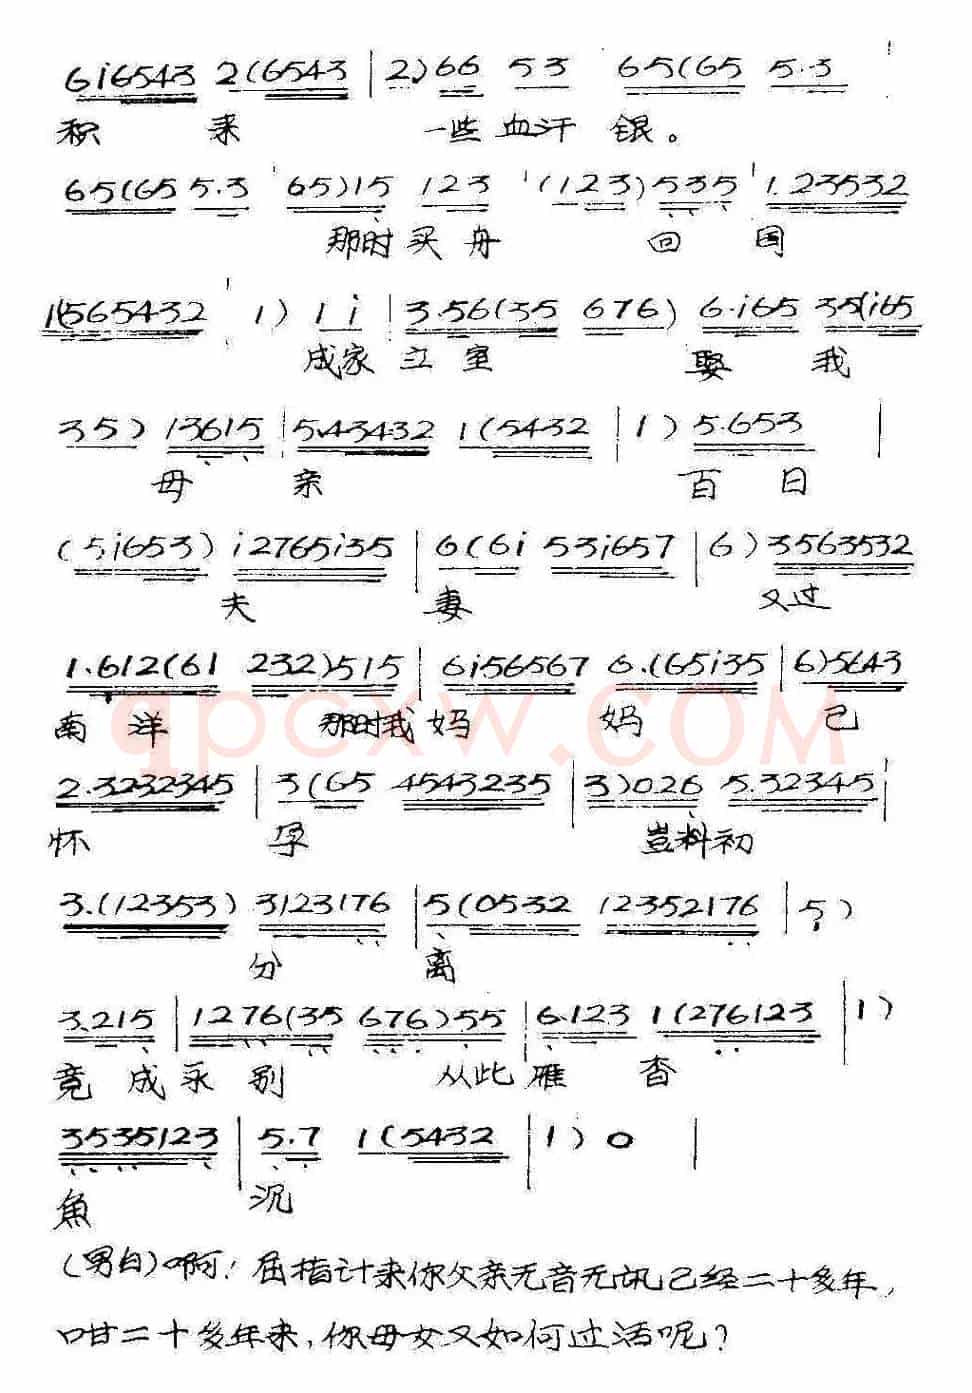 6i6543 2(6543 | 2) 66 53 65(65 5.3
积 来 一些 血汗 银。
65(65 5.3 65)15 123 (123) 535 1.23532
那时买舟 回 国
1(565432 1) 1 i 3.56(35 676) 6.i65 35(i65
成家 立 室 娶 我
35) 13615 5.43432 1(5432 | 1) 5.653 |
母 亲 百 日
(5i653) i2765i35 | 6(6i 53i657 | 6) 3563532
夫 妻 又过
1.612(61 232)515 | 6i56567 6.(65i35 | 6)5643
南 洋 那时我 妈 妈 已
2.3232345 | 3(65 4543235 | 3)026 5.32345
怀 孕 豈料初
3.(12353) 3123176 | 5(0532 12352176 | 5)
分 离
3.215 | 1276(35 676)55 6.123 1(276123 | 1)
竟 成 永 别 从此 雁 杳
3535123 | 5.7 1(5432 | 1) 0 |
魚 沉
(男白)啊!屈指计来你父亲无音无讯已经二十多年,
口甘二十多年来,你母女又如何过活呢?
qpcxw.COM